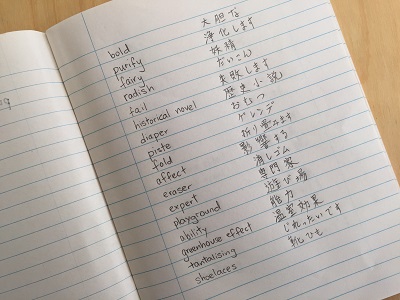 bold 大胆な
purify 浄化します
fairy 妖精
radish だいこん
fail 失敗します
historical novel 歴史小説
diaper おむつ
piste ゲレンデ
fold 折り畳みます
affect 影響する
eraser 消しゴム
expert 専門家
playground 遊び場
ability 能力
greenhouse effect 温室効果
tantalising じれったいです
shoelaces 靴ひも